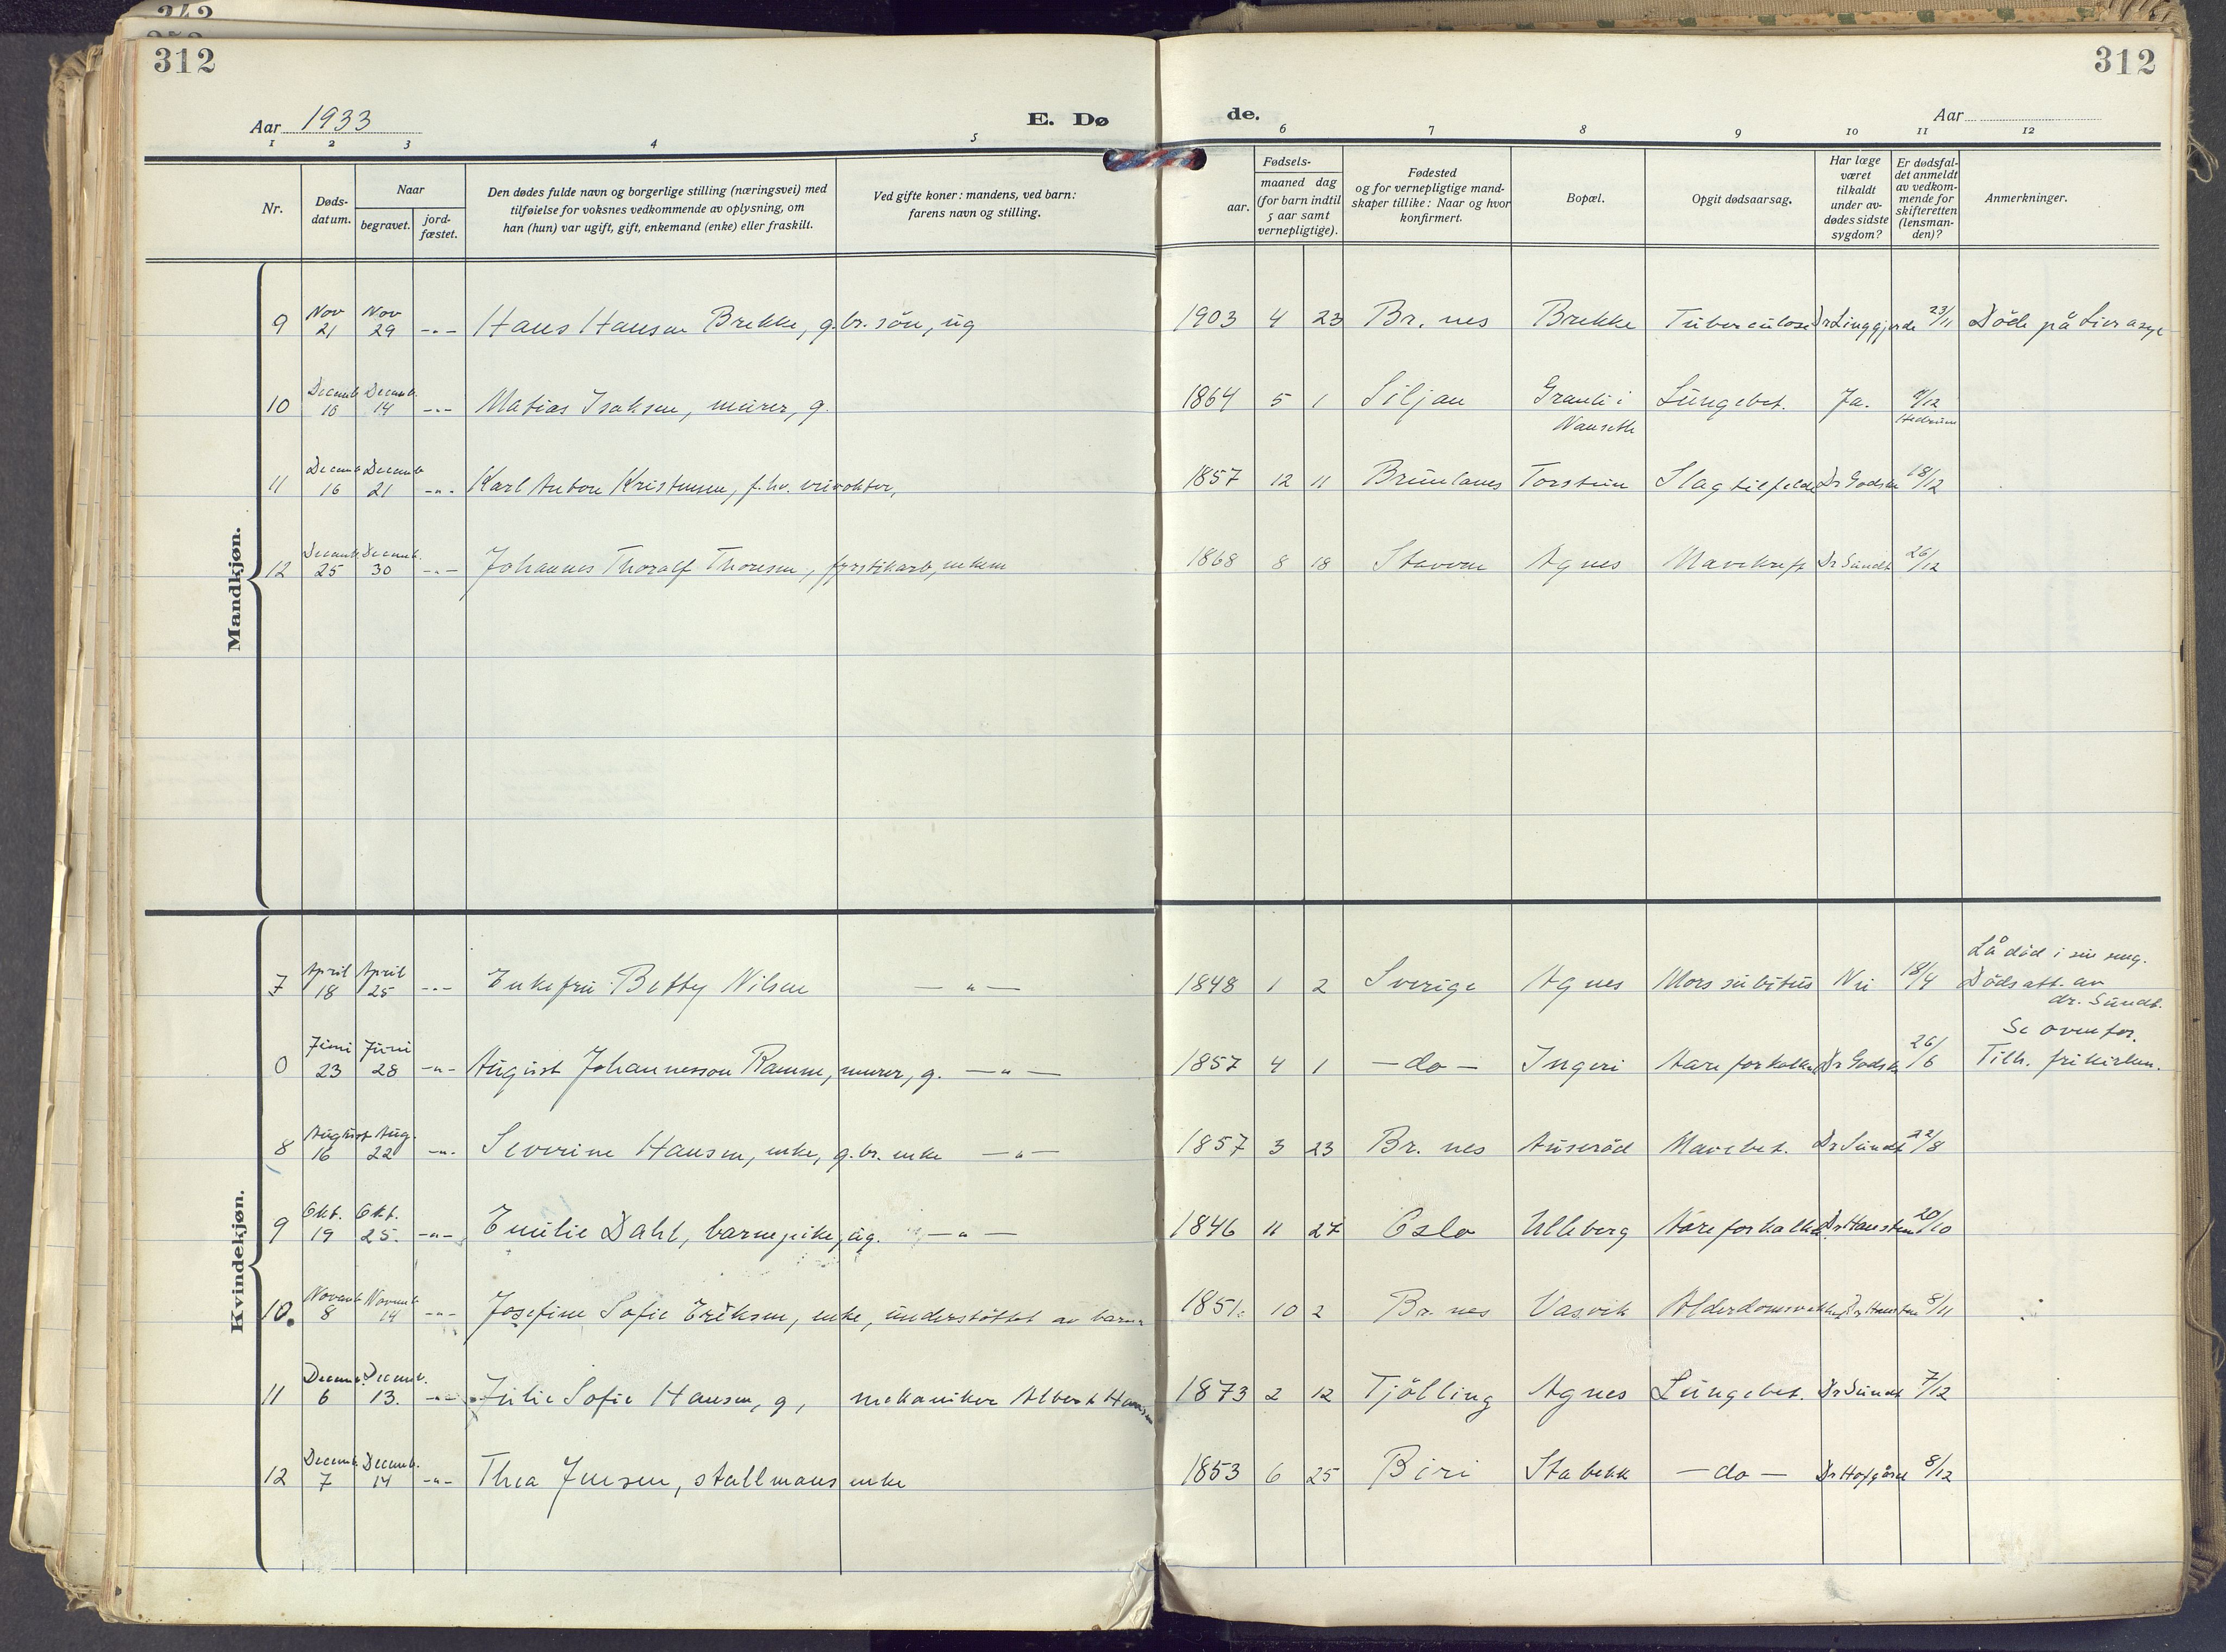 312
312
Aar 1933
E. Dø
de.
Aar
1 2 3 4 5 6 7 8 9 10 11 12
Nr.
Døds-
datum.
Naar
begravet.
jord-
fæstet.
Den dødes fulde navn og borgerlige stilling (næringsvei) med
tilføielse for voksnes vedkommende av oplysning, om
han (hun) var ugift, gift, enkemand (enke) eller fraskilt.
Ved gifte koner: mandens, ved barn:
farens navn og stilling.
aar.
Fødsels-
maaned dag
(for barn indtil
5 aar samt
vernepligtige).
Fødested
og for vernepligtige mand-
skaper tillike: Naar og hvor
konfirmert.
Bopæl.
Opgit dødsaarsag.
Har læge
været
tilkaldt
under av-
dødes sidste
sygdom?
Er dødsfal-
det anmeldt
av vedkom-
mende for
skifteretten
(lensman-
den)?
Anmerkninger.
Mandkjøn.
9 Nov 21 Nov 29 -"- Hans Hansen Brekke, g.br. søn, ug 1903 4 23 Br.nes Brekke Tuberculose Dr Linggjerde 23/11 Døde på Lier asyl
10 Decemb 10 Decemb. 14 -"- Matias Isaksen, murer, g. 1864 5 1 Siljan Granli i Nanseth Lungebet. Ja. 9/12 Hedrum
11 Decemb 16 Decemb 21 -"- Karl Anton Kristensen, f.hv. 1857 12 11 Brunlanes Torstein Slagtilfelde Dr Godsk 18/12
12 Decemb 25 Decemb. 30 -"- Johannes Thoralf Thoresen, fyrstikarb, enkem 1868 8 18 Stavern Agnes Mavekreft Dr Sundt 26/12
Kvindekjøn.
7 April 18 April 25 -"- Enkefru Betty Nilsen -"- 1848 1 2 Sverige Agnes Mors subitus Nei 18/4 Lå død i sin seng. Dødsatt. av dr. Sundt.
0 Juni 23 Juni 28 -"- August Johannesson Ramm, murer, g. -"- 1857 4 1 -do- Ingeri Aareforkalk Dr Godsk 26/6 Se ovenfor. Tilh. frikirken.
8 August 16 Aug. 22 -"- Severine Hansen, enke, g.br. enke -"- 1857 3 23 Br.nes Auserød Mavebet. Dr Sundt 22/8
9 Okt. 19 Okt. 25. -"- Emilie Dahl, barnepike, ug. -"- 1846 11 27 Oslo Ulleberg Åreforkalk Dr Hausten 20/10
10. Novemb 8 Novemb 14 -"- Josefine Sofie Eriksen, enke, understøttet av barn 1851. 10 2 Br.nes Vasvik Alderdomsvekkelse Dr Hausten 8/11
11 Decemb. 6 Decemb. 13. -"- Julie Sofie Hansen, g, mekaniker Albert Hansen 1873 2 12 Tjølling Agnes Lungebet. Dr Sundt 7/12
12 Decemb. 7 Decemb. 14 -"- Thea Jensen, stallmans enke 1853 6 25 Biri Stabekk -do- Dr Hofgård 8/12